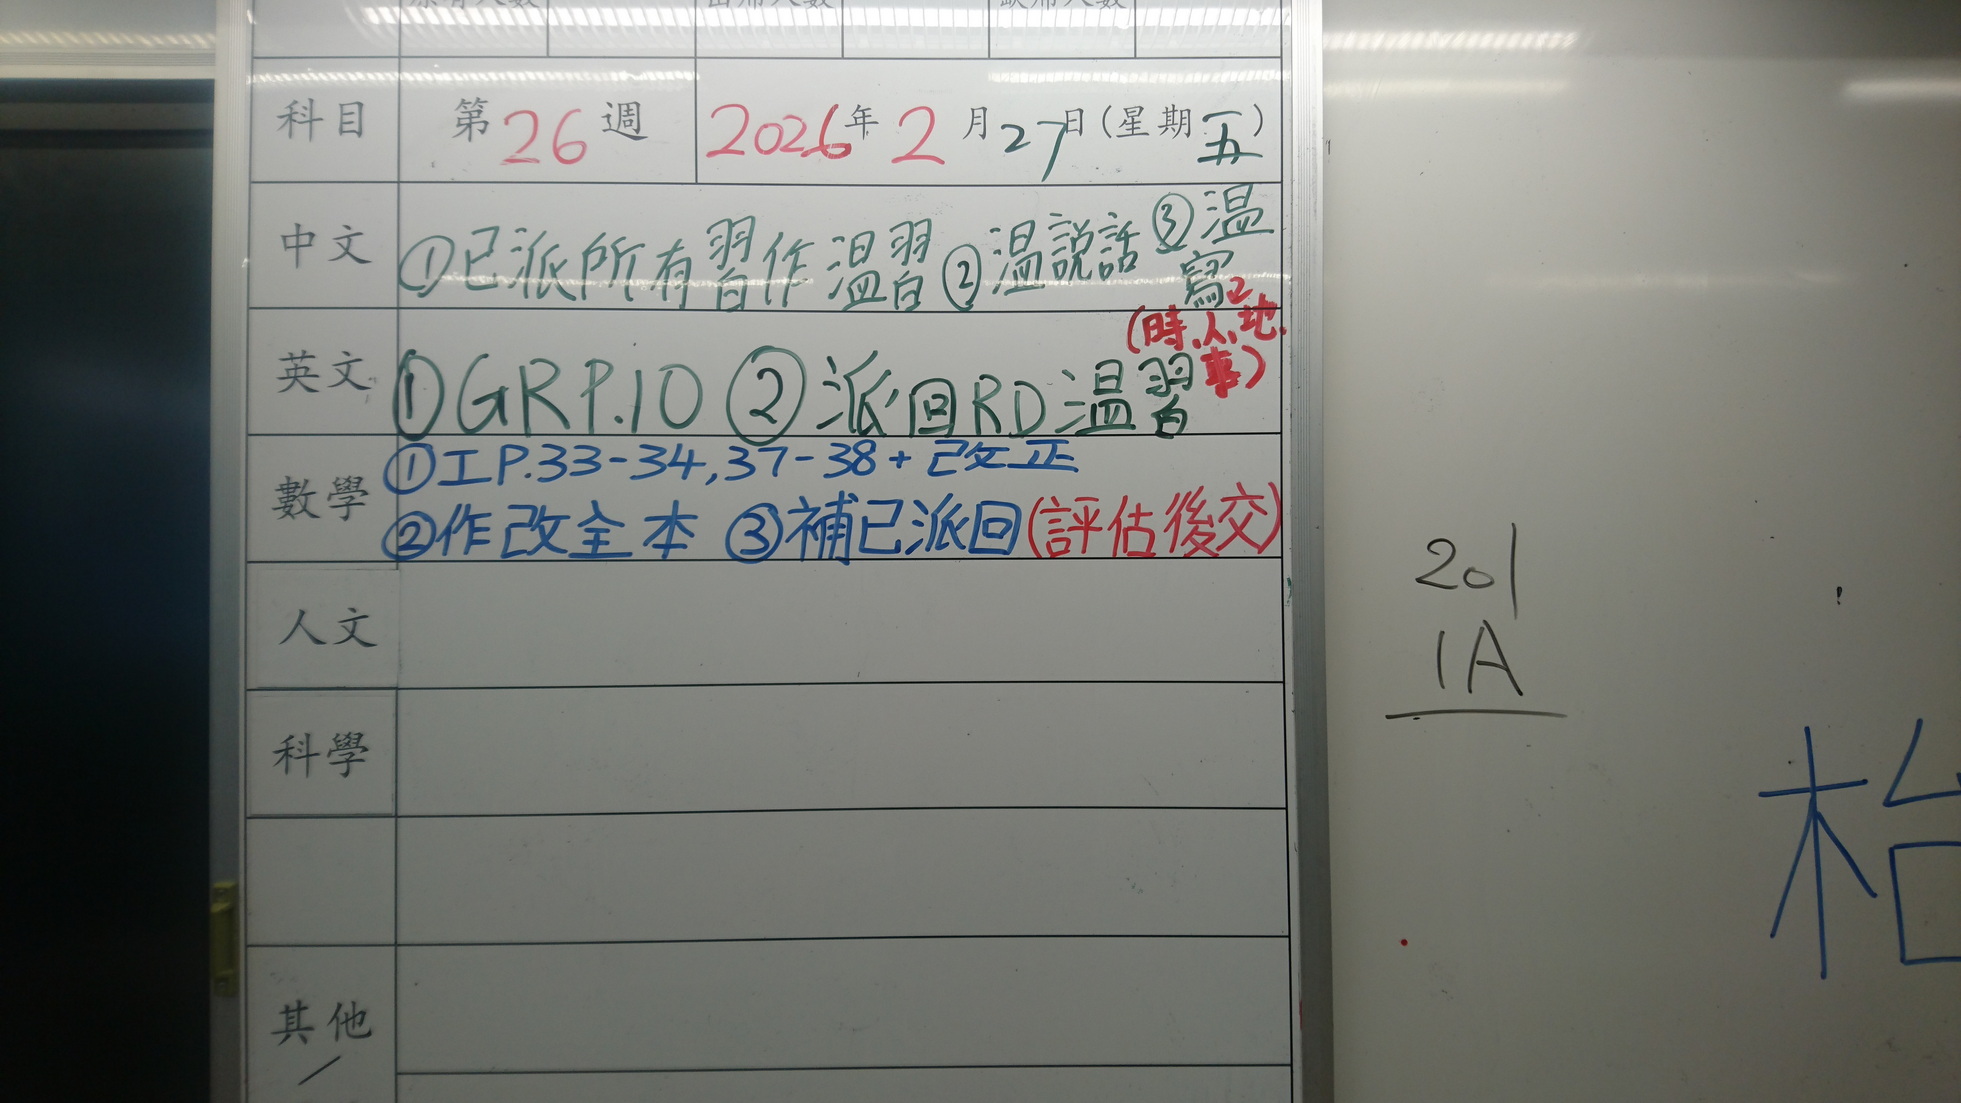 原有人數 出席人數 缺席人數
科目 第26週 2026年2月27日(星期五)
中文 ①已派所有習作溫習②溫説話③溫
寫2
(時、人、地、
事)
英文 ①GRP.10②派回RD溫習
數學 ①工P.33-34,37-38+改正
②作改全本 ③補已派回(評估後交)
人文
科學
其他
201
1A